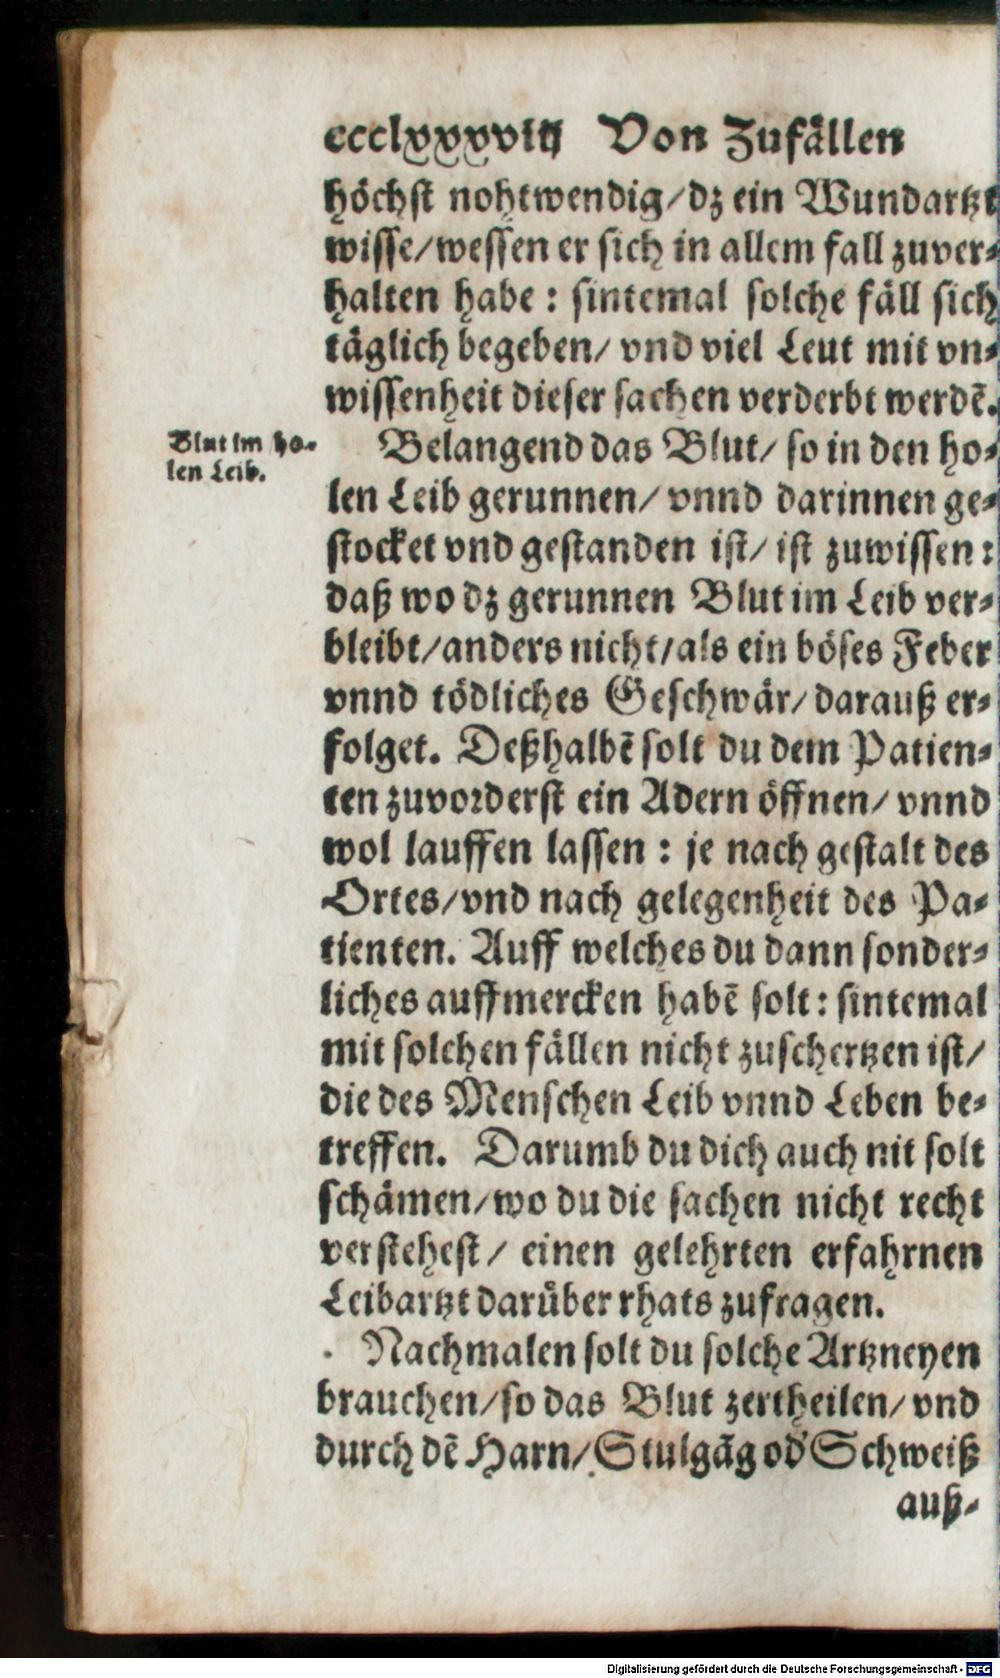 ccclxxxviij Von Zufällen
höchst nohtwendig/dz ein Wundartzt
wisse/wessen er sich in allem fall zuver-
halten habe: sintemal solche fäll sich
täglich begeben/ vnd viel Leut mit vn-
wissenheit dieser sachen verderbt werdē.
Blut im ho-
len Leib.
Belangend das Blut/ so in den ho-
len Leib gerunnen/ vnnd darinnen ge-
stocket vnd gestanden ist/ ist zuwissen:
daß wo dz gerunnen Blut im Leib ver-
bleibt/anders nicht/als ein böses Feber
vnnd tödliches Geschwär/ darauß er-
folget. Deßhalbē solt du dem Patien-
ten zuvorderst ein Adern öffnen/ vnnd
wol lauffen lassen: je nach gestalt des
Ortes/vnd nach gelegenheit des Pa-
tienten. Auff welches du dann sonder-
liches auffmercken habē solt: sintemal
mit solchen fällen nicht zuschertzen ist/
die des Menschen Leib vnnd Leben be-
treffen. Darumb du dich auch nit solt
schämen/wo du die sachen nicht recht
verstehest/ einen gelehrten erfahrnen
Leibartzt darüber rhats zufragen.
Nachmalen solt du solche Artzneyen
brauchen/so das Blut zertheilen/ vnd
durch dē Harn/Stulgāg od' Schweiß
auß-
Digitalisierung gefördert durch die Deutsche Forschungsgemeinschaft - DFG